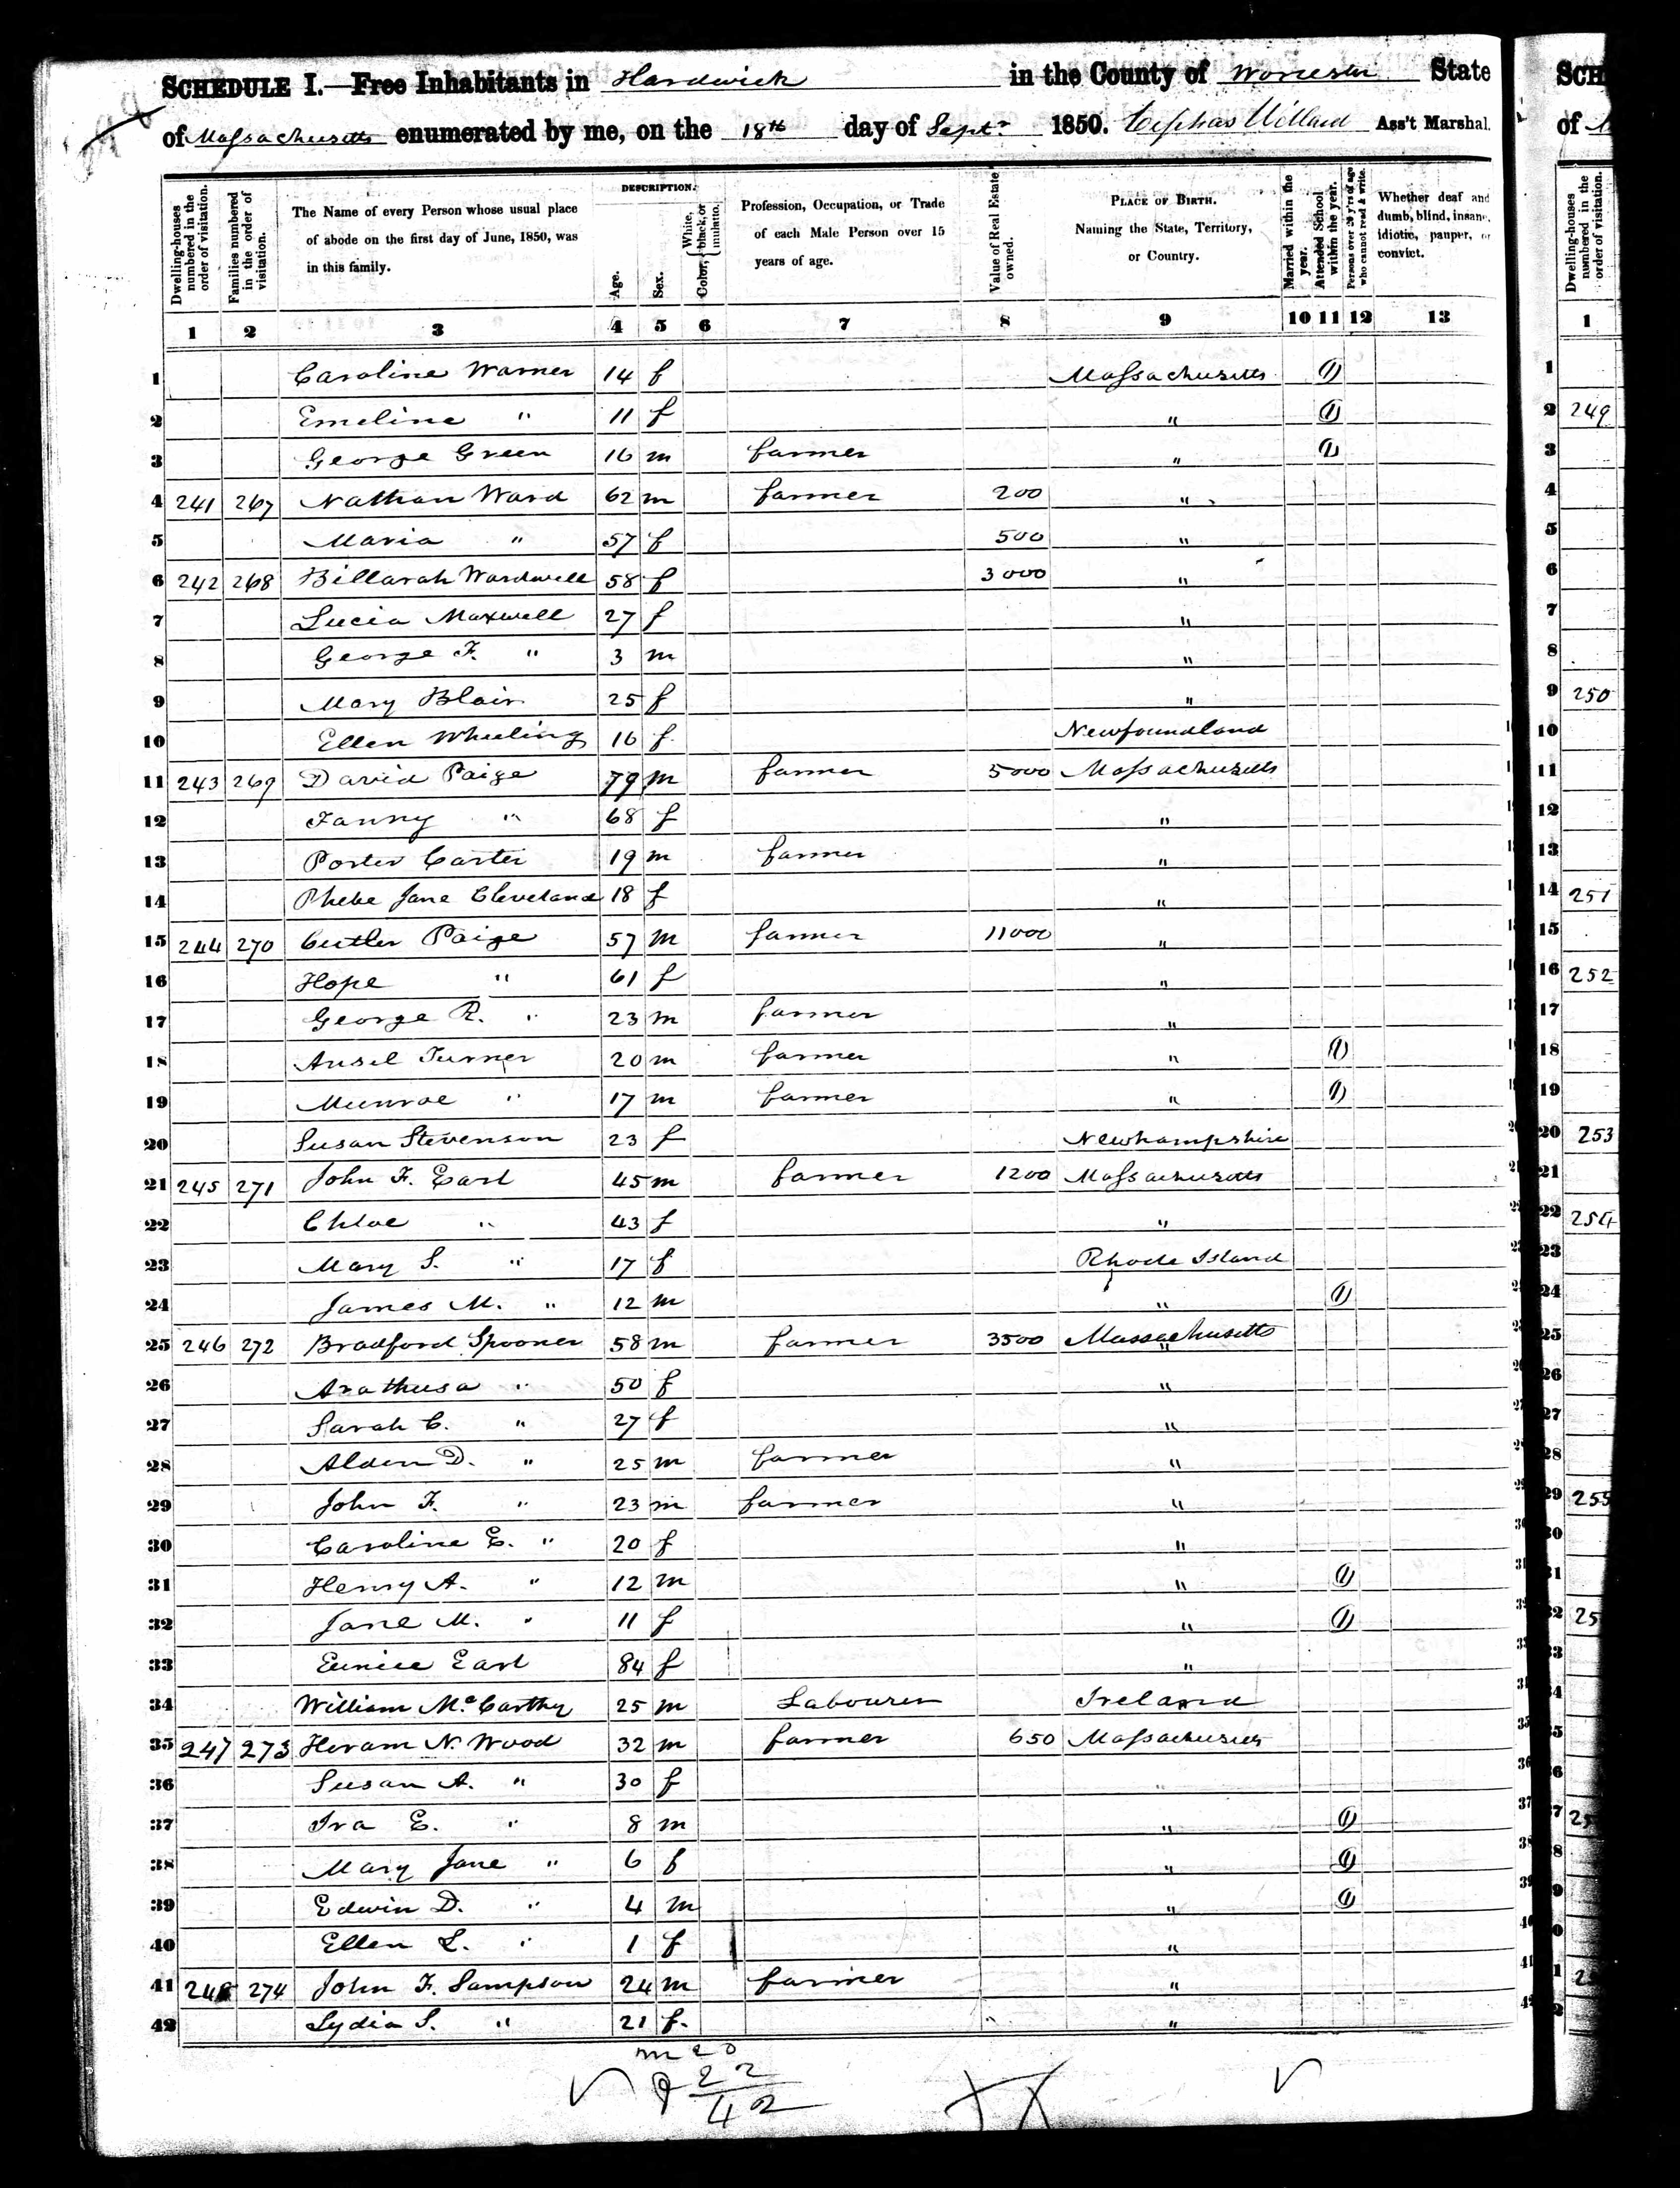 SCHEDULE I.—Free Inhabitants in Hardwick in the County of Worcester State
of Massachusetts enumerated by me, on the 18th day of Sept. 1850. Cephas Willard Ass't Marshal.
Dwelling-houses numbered in the order of visitation.
Families numbered in the order of visitation.
The Name of every Person whose usual place of abode on the first day of June, 1850, was in this family.
DESCRIPTION.
Age.
Sex.
Color, { White, black, or mulatto.
Profession, Occupation, or Trade of each Male Person over 15 years of age.
Value of Real Estate owned.
PLACE OF BIRTH. Naming the State, Territory, or Country.
Married within the year.
Attended School within the year.
Persons over 20 y'rs of age who cannot read & write.
Whether deaf and dumb, blind, insane, idiotic, pauper, or convict.
1 2 3 4 5 6 7 8 9 10 11 12 13
1 Caroline Warner 14 f Massachusetts 1
2 Emeline " 11 f " 1
3 George Green 16 m farmer " 1
4 241 267 Nathan Ward 62 m farmer 200 "
5 Maria " 57 f 500 "
6 242 268 Billarah Wardwell 58 f 3000 "
7 Lucia Maxwell 27 f "
8 George F. " 3 m "
9 Mary Blair 25 f "
10 Ellen Wheeling 16 f Newfoundland
11 243 269 David Paige 79 m farmer 5000 Massachusetts
12 Fanny " 68 f "
13 Porter Carter 19 m farmer "
14 Phebe Jane Cleveland 18 f "
15 244 270 Cutler Paige 57 m farmer 11000 "
16 Hope " 61 f "
17 George R. " 23 m farmer "
18 Ansel Turner 20 m farmer " 1
19 Munroe " 17 m farmer " 1
20 Susan Stevenson 23 f Newhampshire
21 245 271 John F. Earl 45 m farmer 1200 Massachusetts
22 Chloe " 43 f "
23 Mary S. " 17 f Rhode Island
24 James M. " 12 m " 1
25 246 272 Bradford Spooner 58 m farmer 3500 Massachusetts
26 Arathusa " 50 f "
27 Sarah C. " 27 f "
28 Alden D. " 25 m farmer "
29 John F. " 23 m farmer "
30 Caroline E. " 20 f "
31 Henry A. " 12 m " 1
32 Jane M. " 11 f " 1
33 Eunice Earl 84 f "
34 William McCarthy 25 m Labourer Ireland
35 247 273 Hiram N. Wood 32 m farmer 650 Massachusetts
36 Susan A. " 30 f "
37 Ira E. " 8 m " 1
38 Mary Jane " 6 f " 1
39 Edwin D. " 4 m " 1
40 Ellen L. " 1 f "
41 248 274 John F. Sampson 24 m farmer "
42 Lydia S. " 21 f "
m 20
f 22
42
SCH
of
Dwelling-houses numbered in the order of visitation.
1
1
2 249
3
4
5
6
7
8
9 250
10
11
12
13
14 251
15
16 252
17
18
19
20 253
21
22 254
23
24
25
26
27
28
29 255